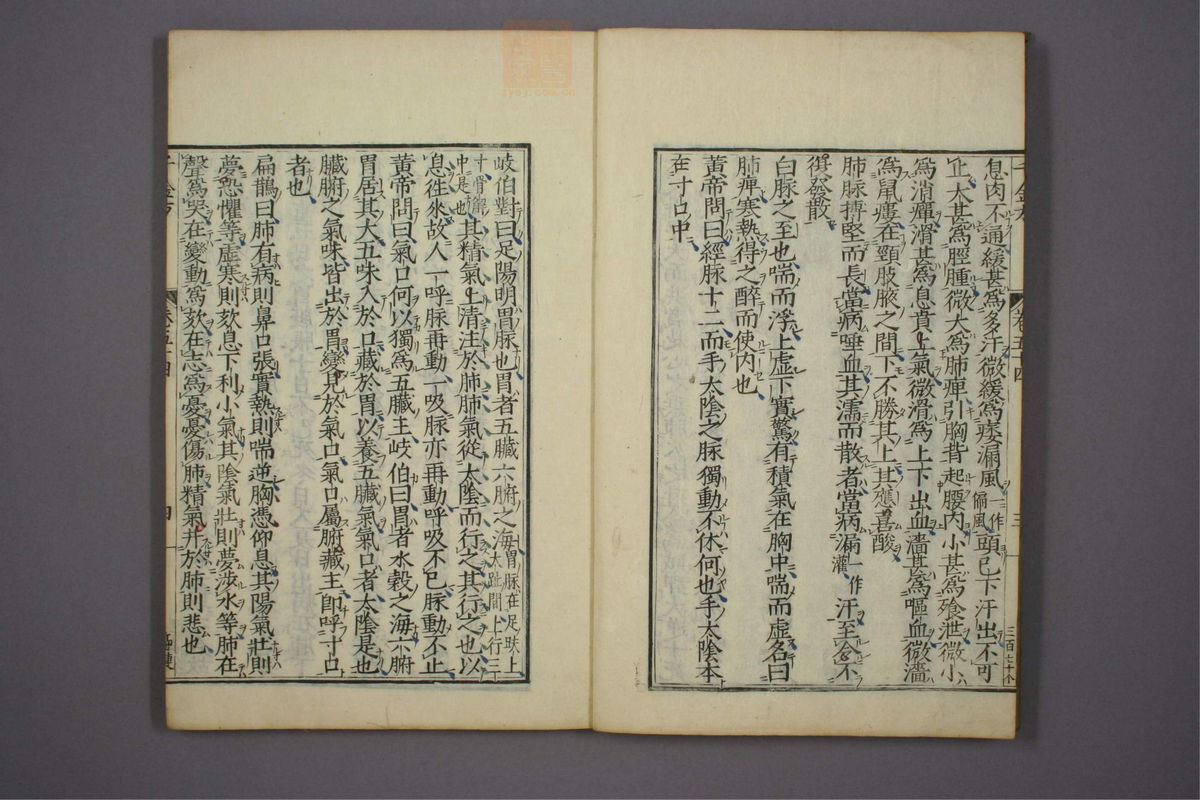 息肉不通緩甚爲多汗微緩爲痿漏風一作偏風頭已下汗出不可
止大甚爲脛腫微大爲肺痺引胸背起腰内小甚爲飱泄微小
爲消癉滑甚爲息賁上氣微滑爲上下出血濇甚爲嘔血微濇
爲鼠瘻在頸肢腋之間下不勝其上其應善酸
肺脉搏堅而長當病唾血其濡而散者當病漏一作灌汗至令不
復發散
白脉之至也喘而浮上虛下實驚有積氣在胸中喘而虛名曰
肺痺寒熱得之醉而使内也
黃帝問曰經脉十二而手太陰之脉獨動不休何也手太陰本
在寸口中
岐伯對曰足陽明胃脉也胃者五臟六腑之海胃脉在足趺上大趾間上行三
寸骨解中是也其精氣上清注於肺肺氣從太陰而行之其行之也以
息往來故人一呼脉再動一吸脉亦再動呼吸不已脉動不止
黃帝問曰氣口何以獨爲五臟主岐伯曰胃者水穀之海六腑
之大其大五味入於口藏於胃以養五臟氣氣口者太陰是也
臟腑之氣味皆出於胃變見於氣口氣口屬腑藏主即呼寸口
者也
扁鵲曰肺有病則鼻口張實熱則喘逆胸憑仰息其陽氣壯則
夢恐懼等虛寒則欬息下利少氣其陰氣壯則夢涉水等肺在
聲爲哭在變動爲欬在志爲憂憂傷肺精氣并於肺則悲也
卷五十四
三
卷五十四
四